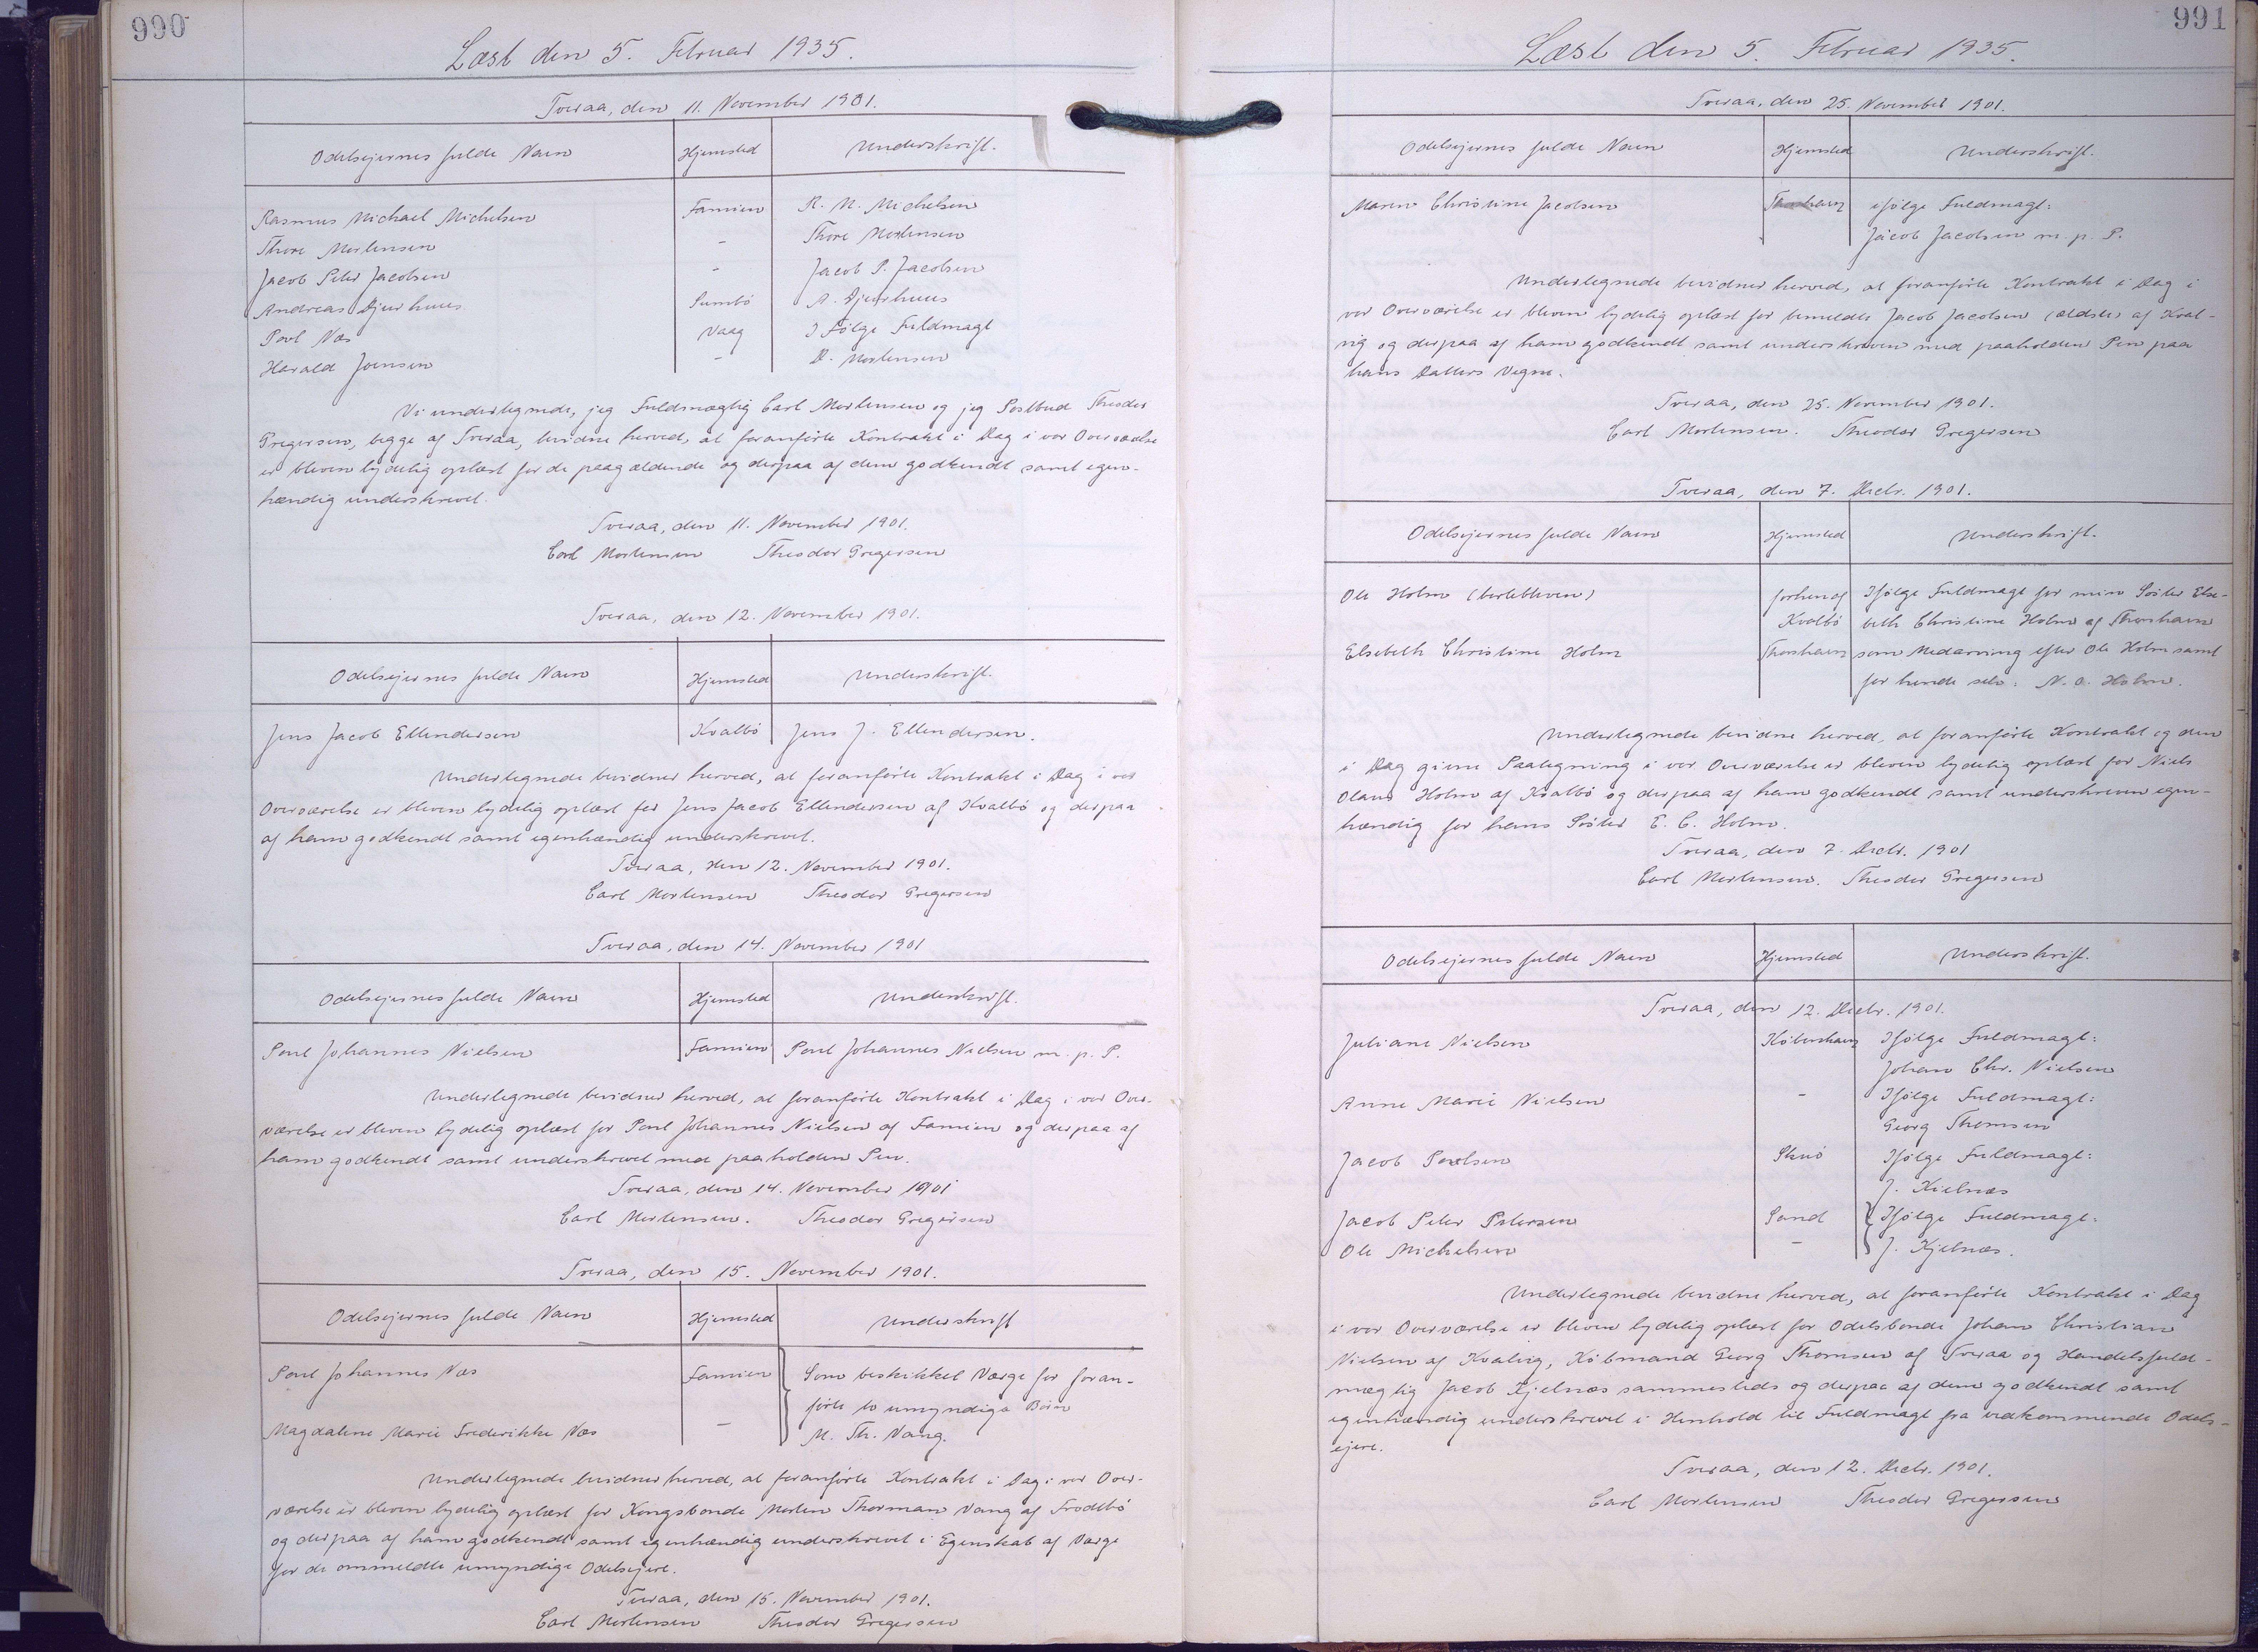 990
Læst den 5. Februar 1935.
Tveraa, den 11. November 1901.
Odelsejernes fulde Navn Hjemsted Underskrift.
Rasmus Michael Michelsen Famien R. M. Michelsen
Thore Mortensen - Thore Mortensen
Jacob Peter Jacobsen - Jacob P. Jacobsen
Andreas Djurhuus Sumbö A. Djurhuus
Povl Næs Vaag I Følge Fuldmagt
Harald Joensen - D. Mortensen
Vi undertegnede, jeg Fuldmægtig Carl Mortensen og jeg Postbud Theodor
Gregersen, begge af Tveraa, bevidne herved, at foranførte Kontrakt i Dag i vor Overværelse
er bleven lydelig oplæst for de paagældende og derpaa af dem godkendt samt egen-
hændig underskrevet.
Tveraa, den 11. November 1901.
Carl Mortensen Theodor Gregersen
Tveraa, den 12. November 1901.
Odelsejernes fulde Navn Hjemsted Underskrift.
Jens Jacob Ellendersen Kvalbö Jens J. Ellendersen.
Undertegnede bevidner herved, at foranførte Kontrakt i Dag i vor
Overværelse er bleven lydelig oplæst for Jens Jacob Ellendersen af Kvalbö og derpaa
af ham godkendt samt egenhændig underskrevet.
Tveraa, den 12. November 1901.
Carl Mortensen Theodor Gregersen
Tveraa, den 14. November 1901
Odelsejernes fulde Navn Hjemsted Underskrift.
Poul Johannes Nielsen Famien Poul Johannes Nielsen m. p. P.
Undertegnede bevidner herved, at foranførte Kontrakt i Dag i vor Over-
værelse er bleven lydelig oplæst for Poul Johannes Nielsen af Famien og derpaa af
ham godkendt samt underskrevet med paaholden Pen.
Tveraa, den 14. November 1901
Carl Mortensen. Theodor Gregersen
Tveraa, den 15. November 1901.
Odelsejernes fulde Navn Hjemsted Underskrift
Poul Johannes Næs Famien Som beskikket Værge for foran-
førte to umyndige Börn
Magdalene Marie Frederikke Næs - M. Th. Vang.
Undertegnede bevidner herved, at foranførte Kontrakt i Dag i vor Over-
værelse er bleven lydelig oplæst for Kongsbonde Morten Thorman Vang af Frodebö
og derpaa af ham godkendt samt egenhændig underskrevet i Egenskab af Værge
for de ommeldte umyndige Odelsejere.
Tveraa, den 15. November 1901.
Carl Mortensen Theodor Gregersen
991
Læst den 5. Februar 1935.
Tveraa, den 25. November 1901.
Odelsejernes fulde Navn Hjemsted Underskrift.
Maren Christine Jacobsen Thorshavn ifølge Fuldmagt:
Jacob Jacobsen m. p. P.
Undertegnede bevidner herved, at foranførte Kontrakt i Dag i
vor Overværelse er bleven lydelig oplæst for bemeldte Jacob Jacobsen (ældste) af Hval-
vig og derpaa af ham godkendt samt underskreven med paaholden Pen paa
hans Datters Vegne.
Tveraa, den 25. November 1901.
Carl Mortensen. Theodor Gregersen
Tveraa, den 7. Decbr. 1901.
Odelsejernes fulde Navn Hjemsted Underskrift.
Ole Holm (bortebleven) forhen af Ifølge Fuldmagt for min Söster Else-
Kvalbö beth Christine Holm af Thorshavn
Elsebeth Christine Holm Thorshavn som Medarving efter Ole Holm samt
for hende selv: N. O. Holm.
Undertegnede bevidne herved, at foranførte Kontrakt og den
i Dag givne Paategning i vor Overværelse er bleven lydelig oplæst for Niels
Olaus Holm af Kvalbö og derpaa af ham godkendt samt underskreven egen-
hændig for hans Söster E. C. Holm.
Tveraa, den 7. Decbr. 1901
Carl Mortensen. Theodor Gregersen
Odelsejernes fulde Navn Hjemsted Underskrift.
Tveraa, den 12. Decbr. 1901.
Juliane Nielsen Köbenhavn Ifølge Fuldmagt:
Johan Chr. Nielsen
Anne Marie Nielsen - Ifølge Fuldmagt:
Georg Thomsen
Jacob Poulsen Skuö Ifølge Fuldmagt:
J. Kjelnæs
Jacob Peter Petersen Sand Ifølge Fuldmagt:
Ole Michelsen - J. Kjelnæs.
Undertegnede bevidne herved, at foranførte Kontrakt i Dag
i vor Overværelse er bleven lydelig oplæst for Odelsbonde Johan Christian
Nielsen af Hvalvig, Köbmand Georg Thomsen af Tveraa og Handelsfuld-
mægtig Jacob Kjelnæs sammesteds og derpaa af dem godkendt samt
egenhændig underskrevet i Henhold til Fuldmagt fra vedkommende Odels-
ejere.
Tveraa, den 12. Decbr. 1901.
Carl Mortensen Theodor Gregersen